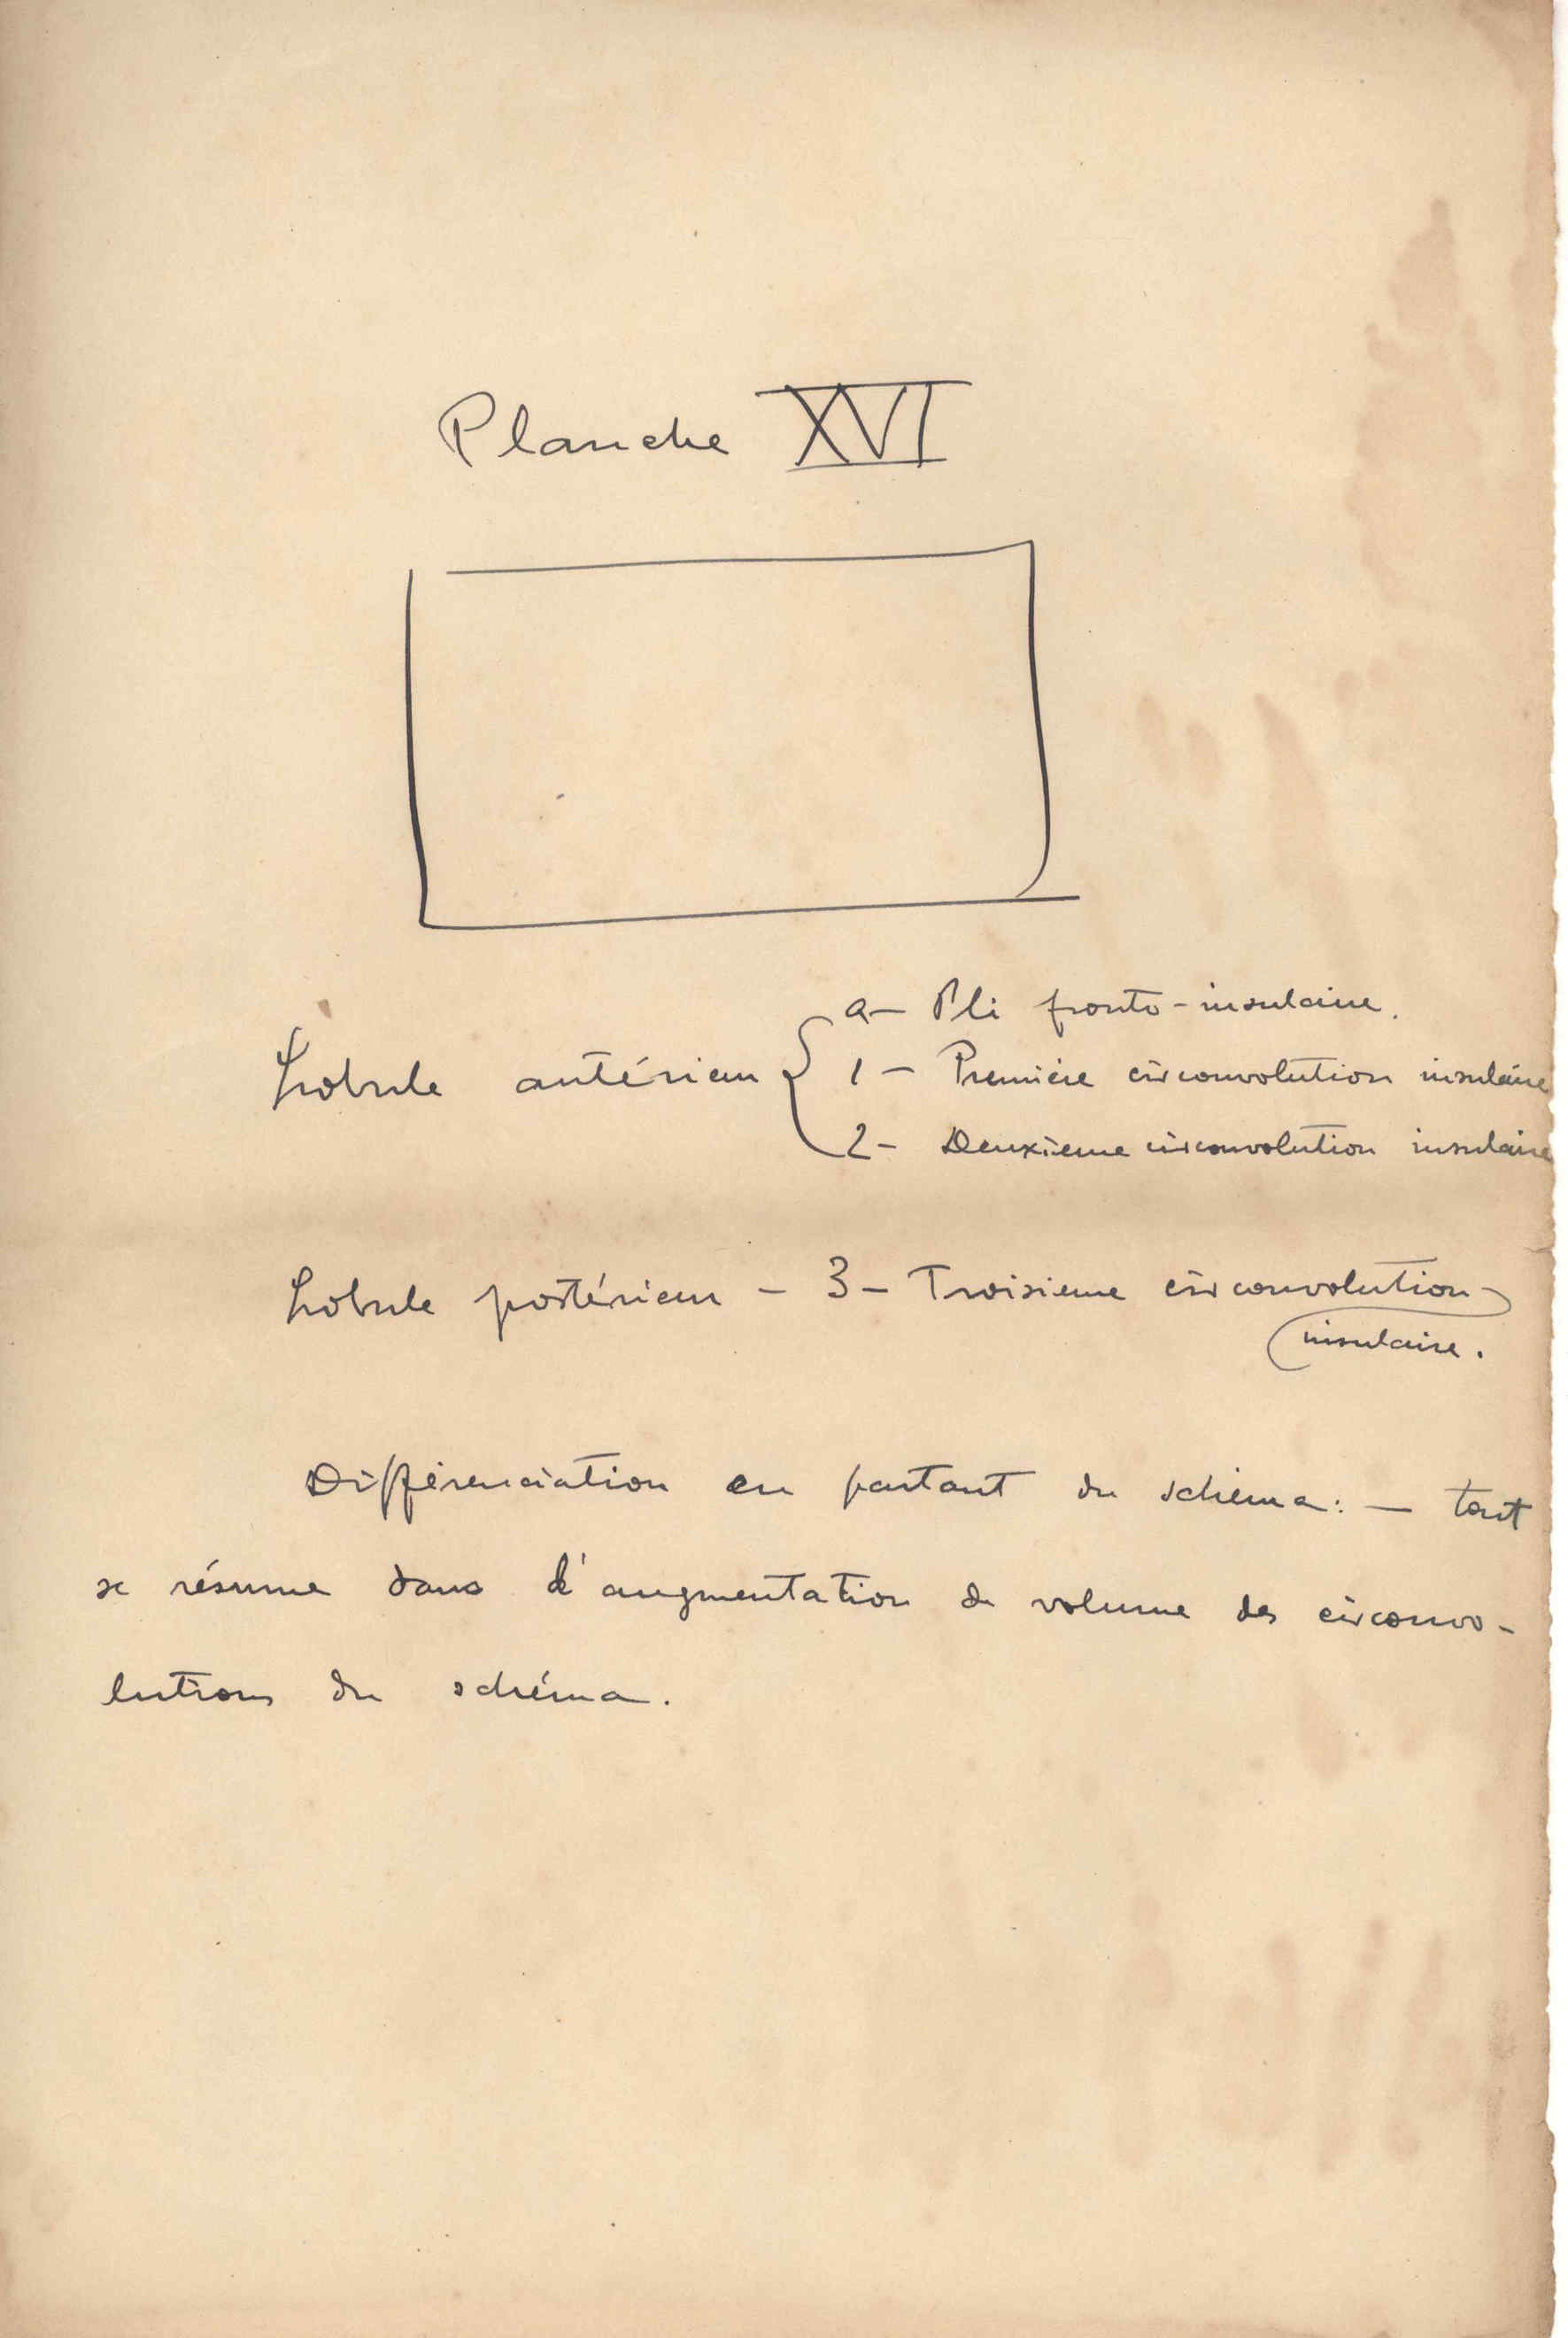 Planche XVI
a - Pli fronto-insulaire.
Lobule antérieur { 1 - Première circonvolution insulaire
2 - Deuxième circonvolution insulaire
Lobule postérieur - 3 - Troisième circonvolution
insulaire.
Différenciation en partant du schéma: — tout
se résume dans l'augmentation de volume des circonvo-
lutions du schéma.